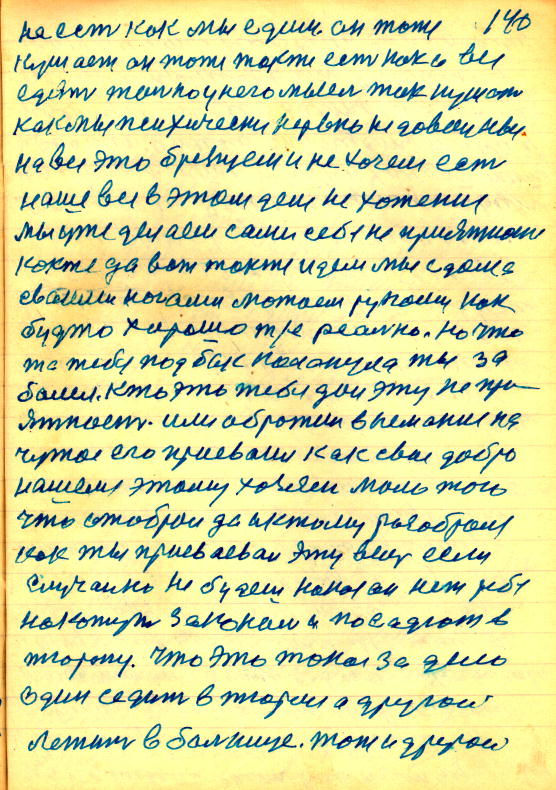 140
не ест как мы едим он тоже
кушает он тоже также ест как и все
едят только у него мысел так кушат
как мы психически нервно не довольны
на все это брезгуем и не хочем ест
наше все в этом деле не хотение
мы уже делаем сами себе не приятност
как же да вот также идем мы с дома
сваими ногами мотаем руками как
будто хорошо все реално. но что
то тебе под бок кольнула ты за
болел. кто это тебе дал эту не при
ятност. или обротил внемание на
чужое его присвоил как свое добро
нашему этому хозяен мало того
что отобрал да и к тому разобрал
как ты присваевал эту вещ если
случаино не будеш наказан нет тебя
накажут законом и посадят в
тюрму. что это такое за дело
один седит в тюрме а другои
лежит в балнице. тот и другои